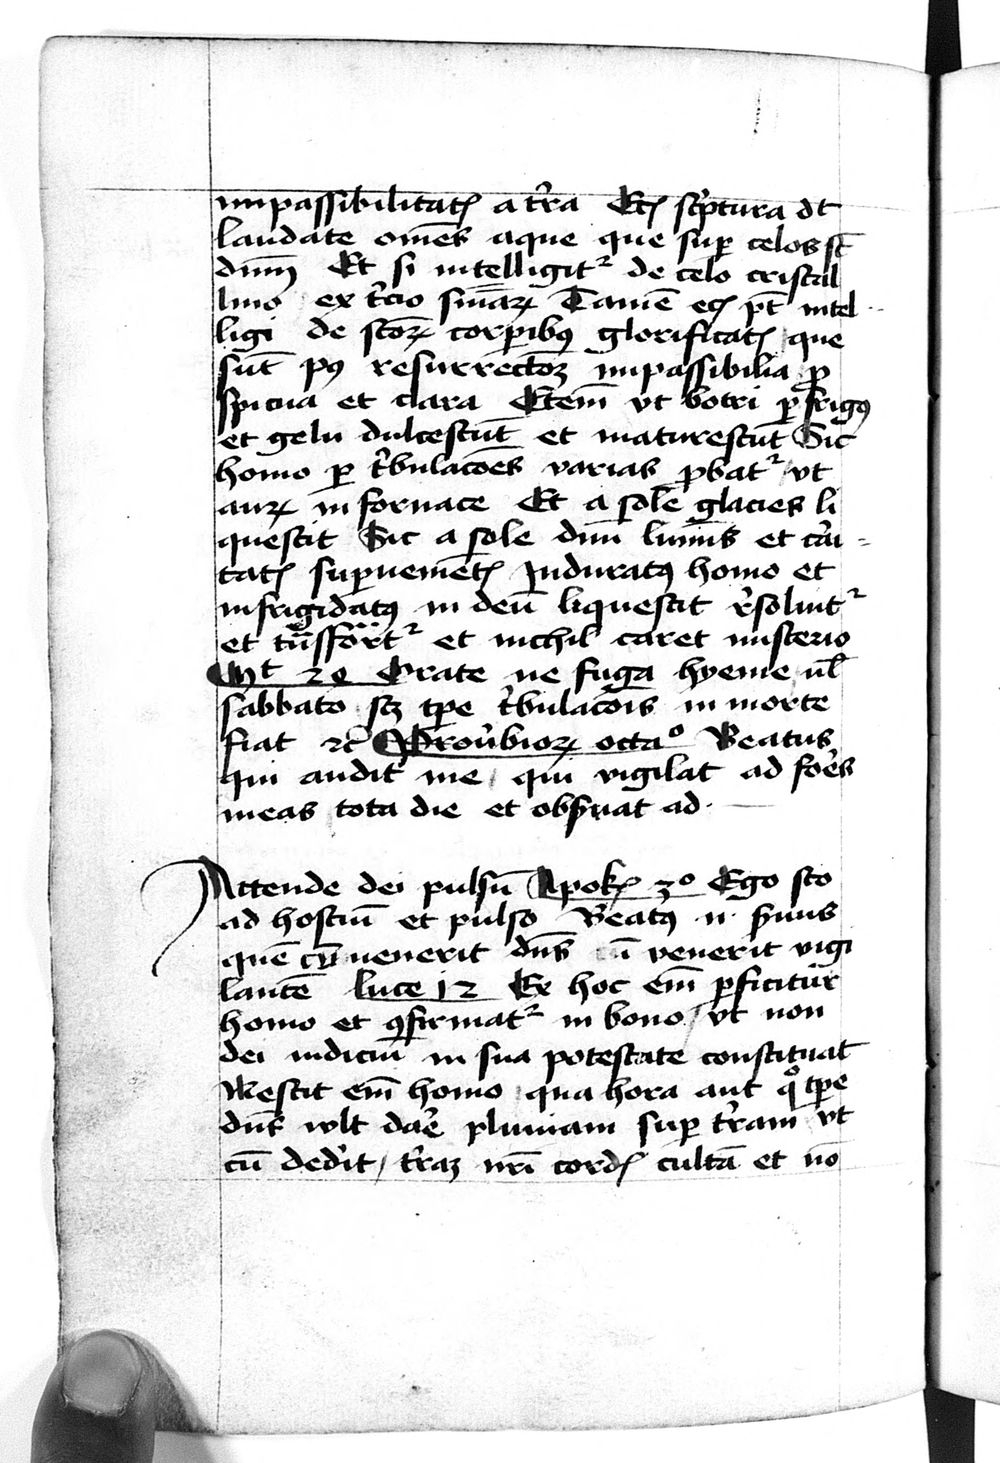 impassibilitatꝭ a tr̃a Etꝭ scͥptura dt
laudate om̃es aque que suꝑ celos st̃
dnm̃ Et si intelligitᷣ de celo cristal
lino ex tͥcio sm̃arꝝ Tamē ecꝭ pt̃ intel
ligi de scõrꝝ corꝑibꝰ glorificatꝭ que
sūt pꝰ resurrectõꝫ impassibilia ꝑ
spicua et clara Etem̃ vt botri ꝑ frigꝰ
et gelu dulcescūt et maturescūt Sic
homo ꝑ tͥbulacões varias ꝓbatᷣ / vt
aurꝝ in fornace Et a sole glacies li
quescit Sic a sole dnī lumīs et cãi
tatꝭ suꝑueniētꝭ Induratꝰ homo et
infrigidatꝰ in deū liquescit r̃soluitᷣ
et tñsfortᷣ et nichil caret misterio
Mt 24 Orate ne fuga hyeme ul̃
sabbato sꝫ tp̃e tͥbulacõis in morte
fiat ⁊c̃ Prou̾biorꝝ octaᵒ Beatus
qui audit me / qui vigilat ad fores
meas tota die et obẜuat ad
Attende dei pulsū Apokꝭ 3ᵒ Ego sto
ad hostiū et pulso Beatꝰ n ẜuus
quē cū uenerit dñs cū venerit vigi
lantē luce 12 Ex hoc em̃ ꝑficitur
homo et ꝯfirmatᷣ in bono / vt non
dei iudiciū in sua potestate constituat
Nescit em̃ homo qua hora aut qͦ tp̃e
dñs wlt dar̃e pluuiam suꝑ tr̃am vt
cū ded̾it / tr̃aꝫ nr̃i cordꝭ cultā et nō